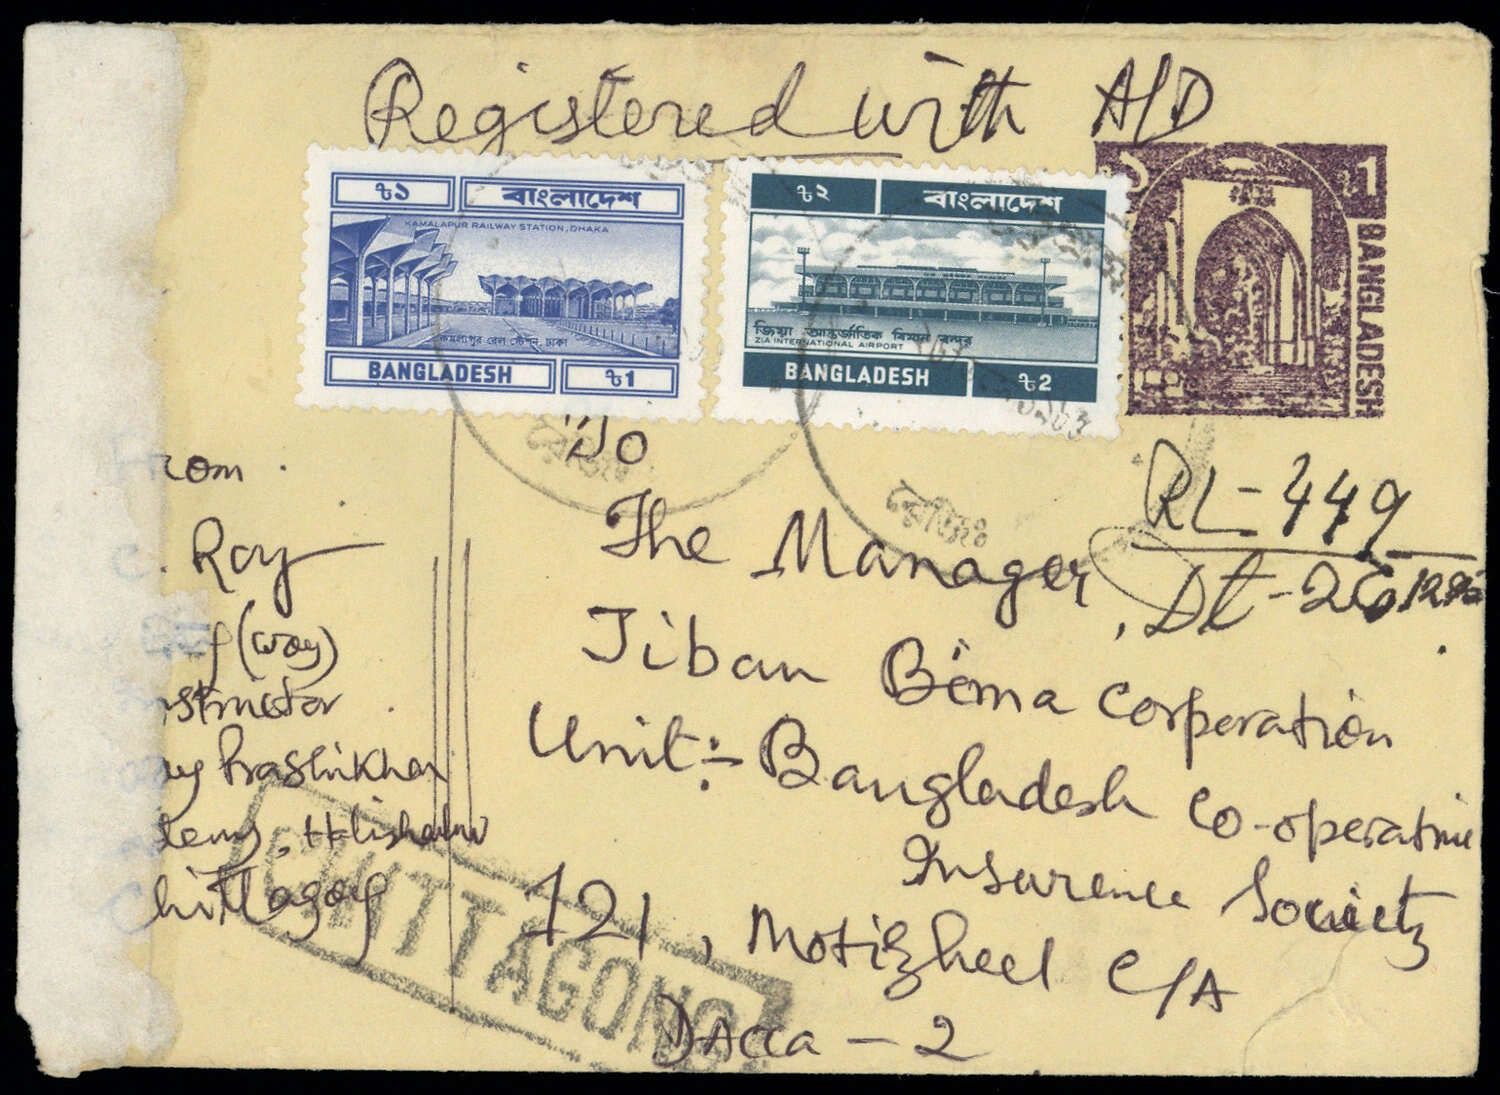 Registered with A/D
৳১ বাংলাদেশ
KAMALAPUR RAILWAY STATION, DHAKA
কমলাপুর রেল স্টেশন, ঢাকা
BANGLADESH ৳1
৳২ বাংলাদেশ
জিয়া আন্তর্জাতিক বিমান বন্দর
ZIA INTERNATIONAL AIRPORT
BANGLADESH ৳2
১ ৳1
BANGLADESH
রেজিঃ
রেজিঃ
RL-449
Dt-26.12.
rom
Roy
f (Way)
nstructor
ay Prashikhan
demy, Halishahar
hittagong
To
The Manager,
Jiban Bima Corporation
Unit:- Bangladesh Co-operative
Insurence Society
121, Motizheel C/A
Dacca - 2
CHITTAGONG